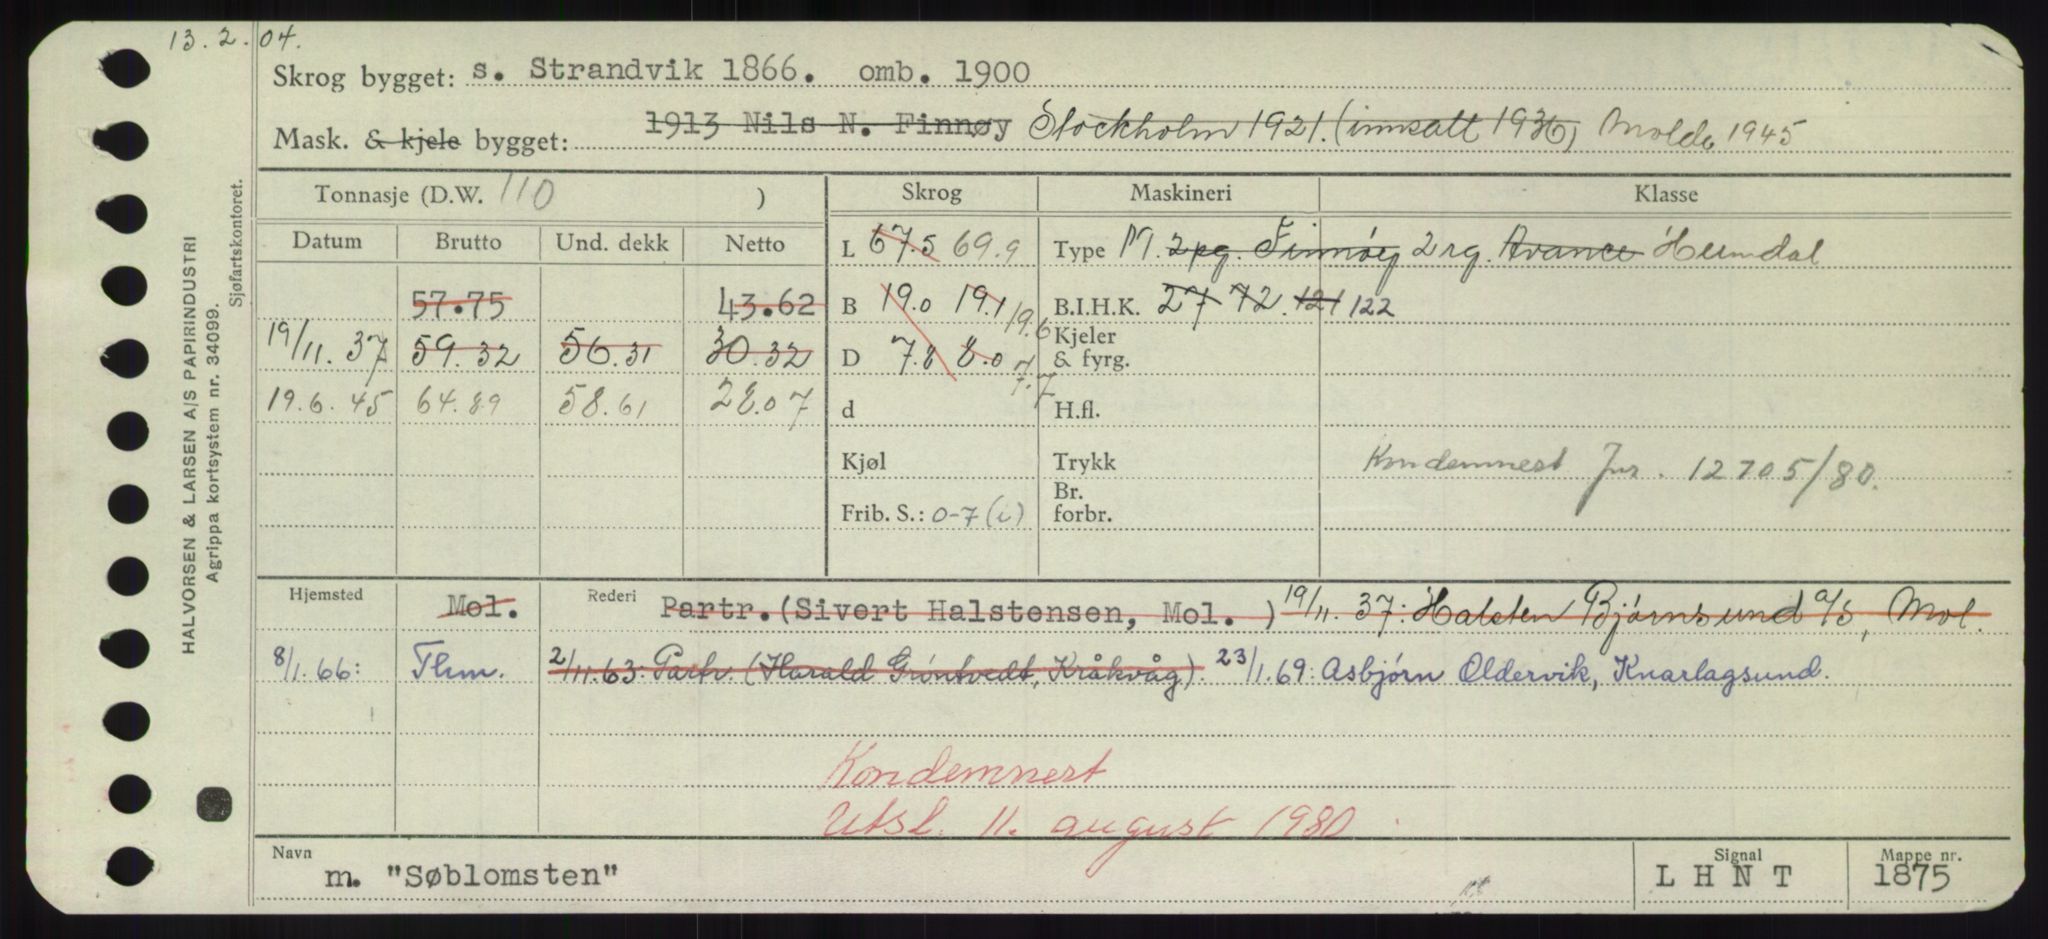 13.2.04.
Skrog bygget: s. Strandvik 1866. omb. 1900
Mask. & kjele bygget: 1913 Nils N. Finnøy Stockholm 1921. (innsatt 1936) Molde 1945
HALVORSEN & LARSEN A/S PAPIRINDUSTRI
Agrippa kortsystem nr. 34099.
Sjøfartskontoret.
Tonnasje (D.W. 110 ) Skrog Maskineri Klasse
Datum Brutto Und. dekk Netto
L 67.5 69.9 Type M. 2pg. Finnøy 2rg. Avance Heimdal
57.75 43.62 B 19.0 19.1 19.6 B.I.H.K. 27 72. 121 122
19/11.37 59.32 56.31 30.32 D 7.8 8.0 7.7 Kjeler & fyrg.
19.6.45 64.89 58.61 28.07 d H.fl.
Kjøl Trykk Kondemnert Jnr. 12705/80.
Frib. S.: 0-7 (i) Br. forbr.
Hjemsted Mol. Rederi Partr. (Sivert Halstensen, Mol. ) 19/11.37: Halsten Bjørnsund a/s, Mol.
8/1.66: Thm. 2/11.63: Partr. (Harald Grøntvedt, Kråkvåg). 23/1.69: Asbjørn Oldervik, Knarlagsund.
Kondemnert
Utsl. 11. august 1980
Navn Signal Mappe nr.
m. "Søblomsten" L H N T 1875